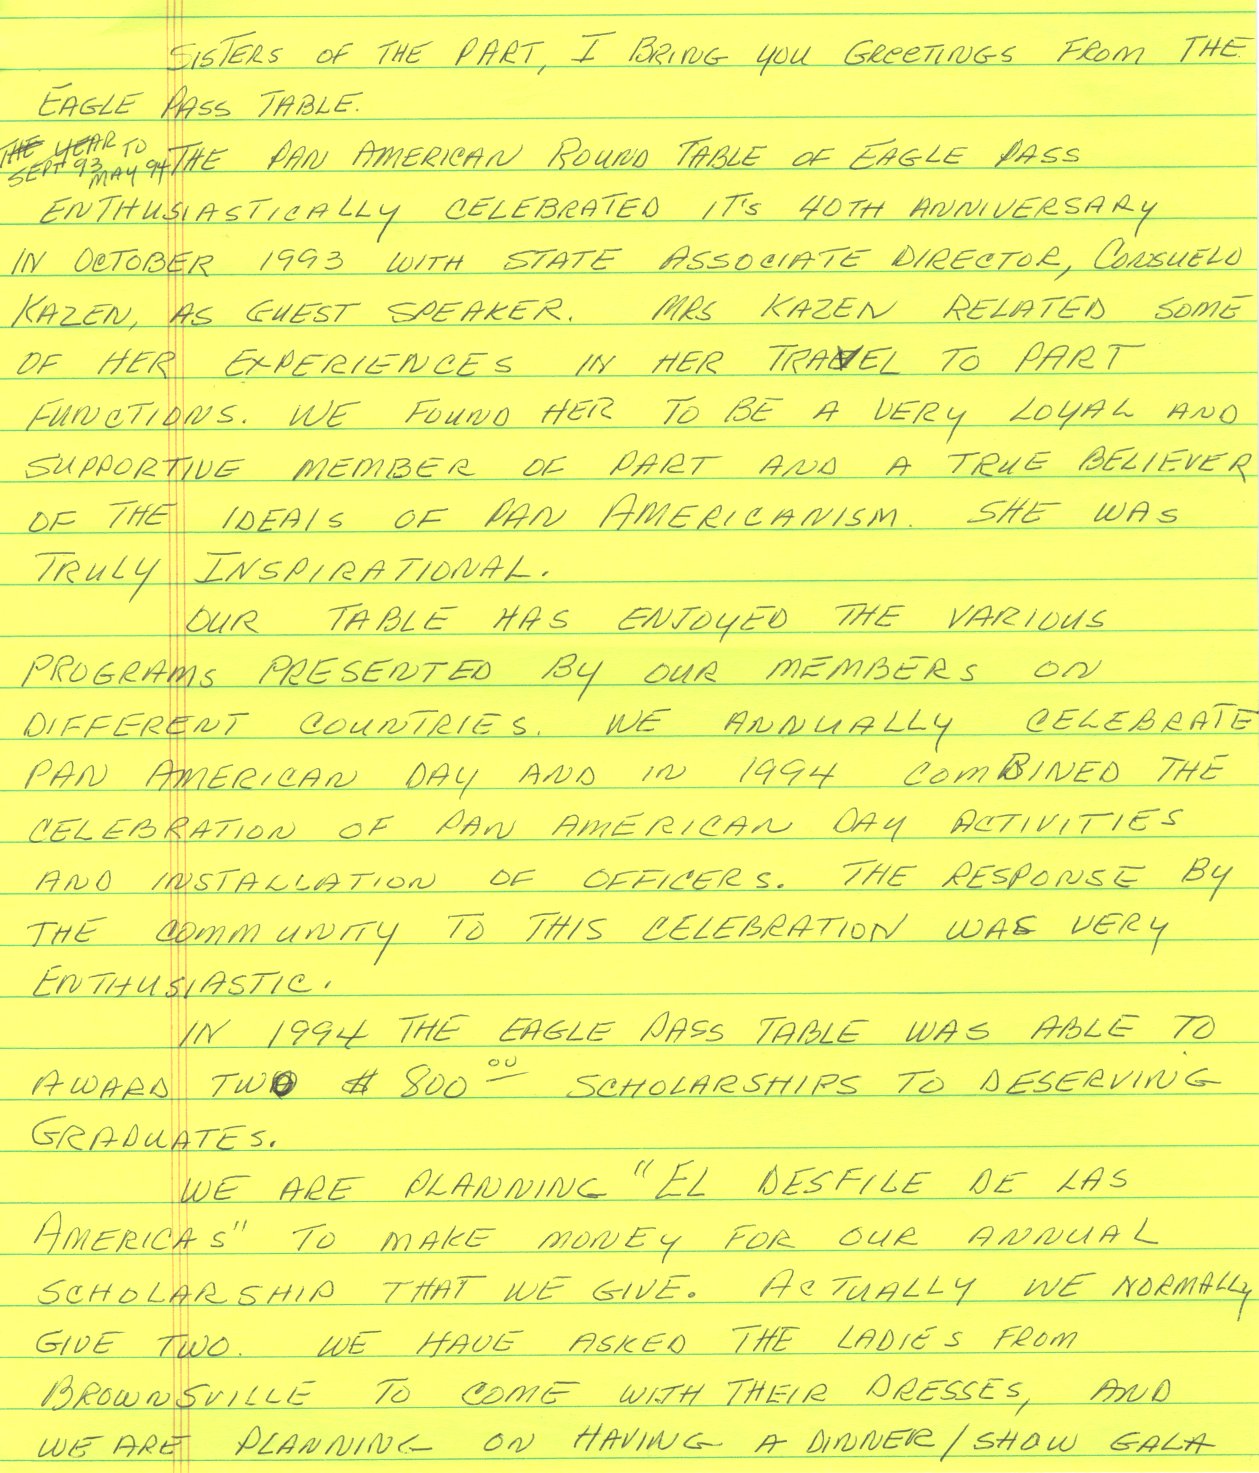 SISTERS OF THE PART, I BRING YOU GREETINGS FROM THE
EAGLE PASS TABLE.
THE YEAR TO
SEPT 93 MAY 94
THE PAN AMERICAN ROUND TABLE OF EAGLE PASS
ENTHUSIASTICALLY CELEBRATED IT'S 40TH ANNIVERSARY
IN OCTOBER 1993 WITH STATE ASSOCIATE DIRECTOR, CONSUELO
KAZEN, AS GUEST SPEAKER. MRS KAZEN RELATED SOME
OF HER EXPERIENCES IN HER TRAVEL TO PART
FUNCTIONS. WE FOUND HER TO BE A VERY LOYAL AND
SUPPORTIVE MEMBER OF PART AND A TRUE BELIEVER
OF THE IDEALS OF PAN AMERICANISM. SHE WAS
TRULY INSPIRATIONAL.
OUR TABLE HAS ENJOYED THE VARIOUS
PROGRAMS PRESENTED BY OUR MEMBERS ON
DIFFERENT COUNTRIES. WE ANNUALLY CELEBRATE
PAN AMERICAN DAY AND IN 1994 COMBINED THE
CELEBRATION OF PAN AMERICAN DAY ACTIVITIES
AND INSTALLATION OF OFFICERS. THE RESPONSE BY
THE COMMUNITY TO THIS CELEBRATION WAS VERY
ENTHUSIASTIC.
IN 1994 THE EAGLE PASS TABLE WAS ABLE TO
AWARD TWO $800 00 SCHOLARSHIPS TO DESERVING
GRADUATES.
WE ARE PLANNING "EL DESFILE DE LAS
AMERICAS" TO MAKE MONEY FOR OUR ANNUAL
SCHOLARSHIP THAT WE GIVE. ACTUALLY WE NORMALLY
GIVE TWO. WE HAVE ASKED THE LADIES FROM
BROWNSVILLE TO COME WITH THEIR DRESSES, AND
WE ARE PLANNING ON HAVING A DINNER/SHOW GALA